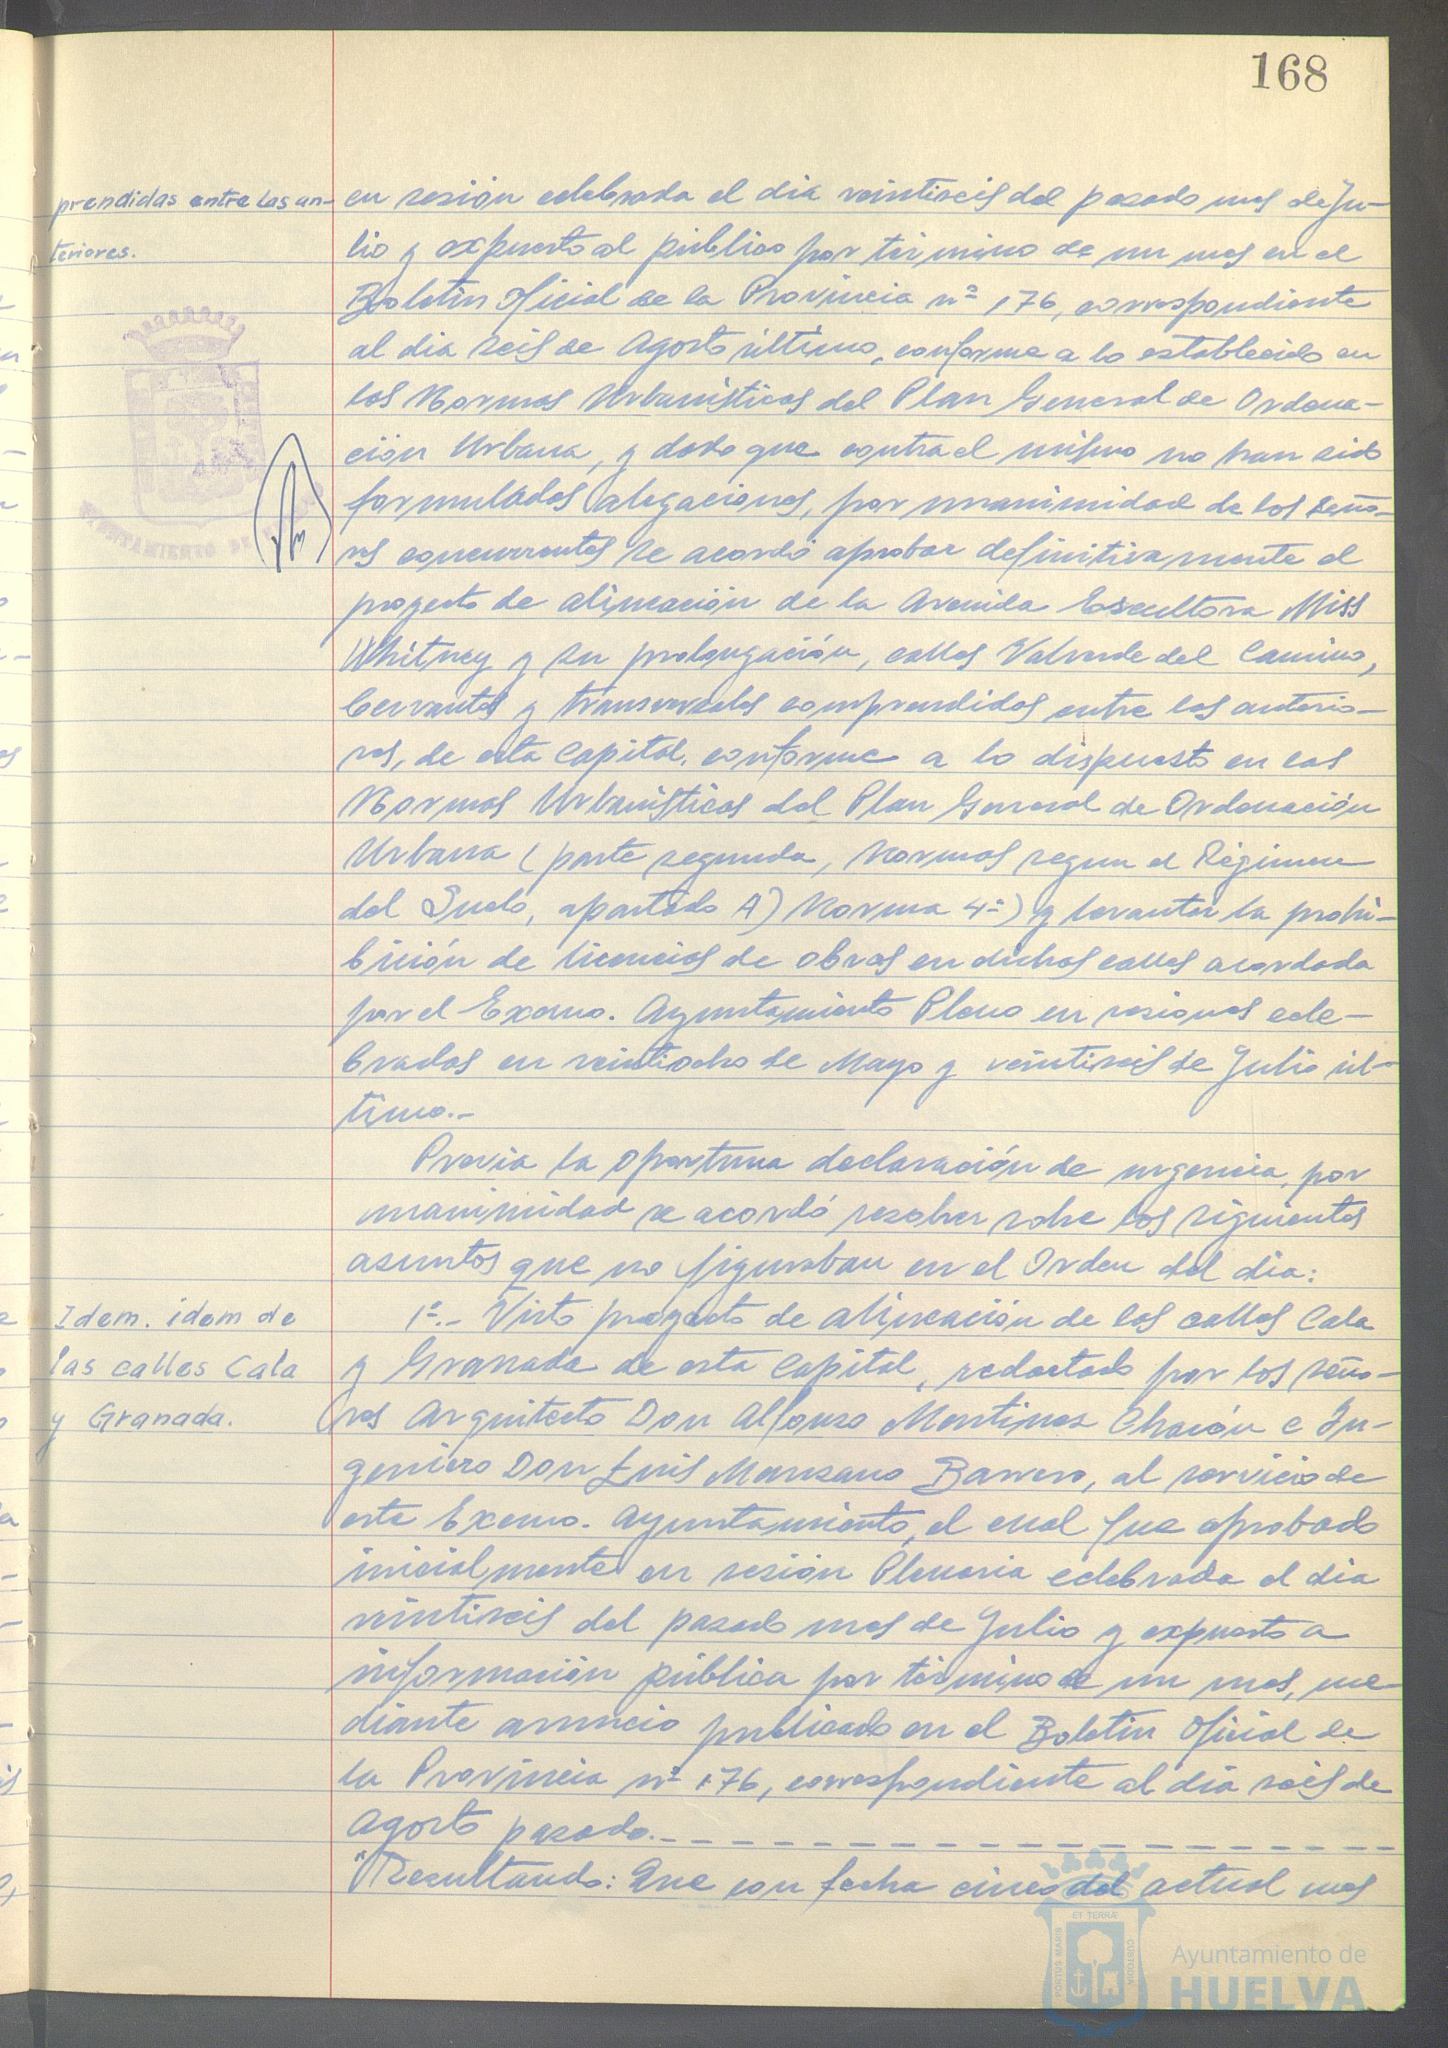 168
prendidas entre las an-
teriores.
en sesión celebrada el dia veintiseis del pasado mes de Ju-
lio y expuesto al público por término de un mes en el
Boletin Oficial de la Provincia nº 176, correspondiente
al dia seis de Agosto último, conforme a lo establecido en
las Normas Urbanísticas del Plan General de Ordena-
ción Urbana, y dado que contra el mismo no han sido
formulados alegaciones, por unanimidad de los seño-
res concurrentes se acordó aprobar definitivamente el
proyecto de alineación de la Avenida Escultora Miss
Whitney y su prolongación, calles Valverde del Camino,
Cervantes y transversales comprendidas entre las anterio-
res, de esta Capital, conforme a lo dispuesto en las
Normas Urbanísticas del Plan General de Ordenación
Urbana (parte segunda, Normas segun el Régimen
del Suelo, apartado A) Norma 4ª) y levantar la prohi-
bición de licencias de obras en dichas calles acordada
por el Excmo. Ayuntamiento Pleno en sesiones cele-
bradas en veintiocho de Mayo y veintiseis de Julio úl-
timo.-
Previa la oportuna declaración de urgencia, por
unanimidad se acordó resolver sobre los siguientes
asuntos que no figuraban en el Orden del dia:
Idem. idem de
las calles Cala
y Granada.
1º.- Visto proyecto de alineación de las calles Cala
y Granada de esta Capital, redactado por los seño-
res Arquitecto Don Alfonso Martinez Chacón e In-
geniero Don Luis Manzano Barrero, al servicio de
este Excmo. Ayuntamiento, el cual fue aprobado
inicialmente en sesión Plenaria celebrada el dia
veintiseis del pasado mes de Julio y expuesto a
información pública por término de un mes, me-
diante anuncio publicado en el Boletin Oficial de
la Provincia nº 176, correspondiente al dia seis de
Agosto pasado.-
"Resultando: Que con fecha cinco del actual mes
AYUNTAMIENTO DE
PORTUS MARIS ET TERRÆ CUSTODIA
Ayuntamiento de
HUELVA